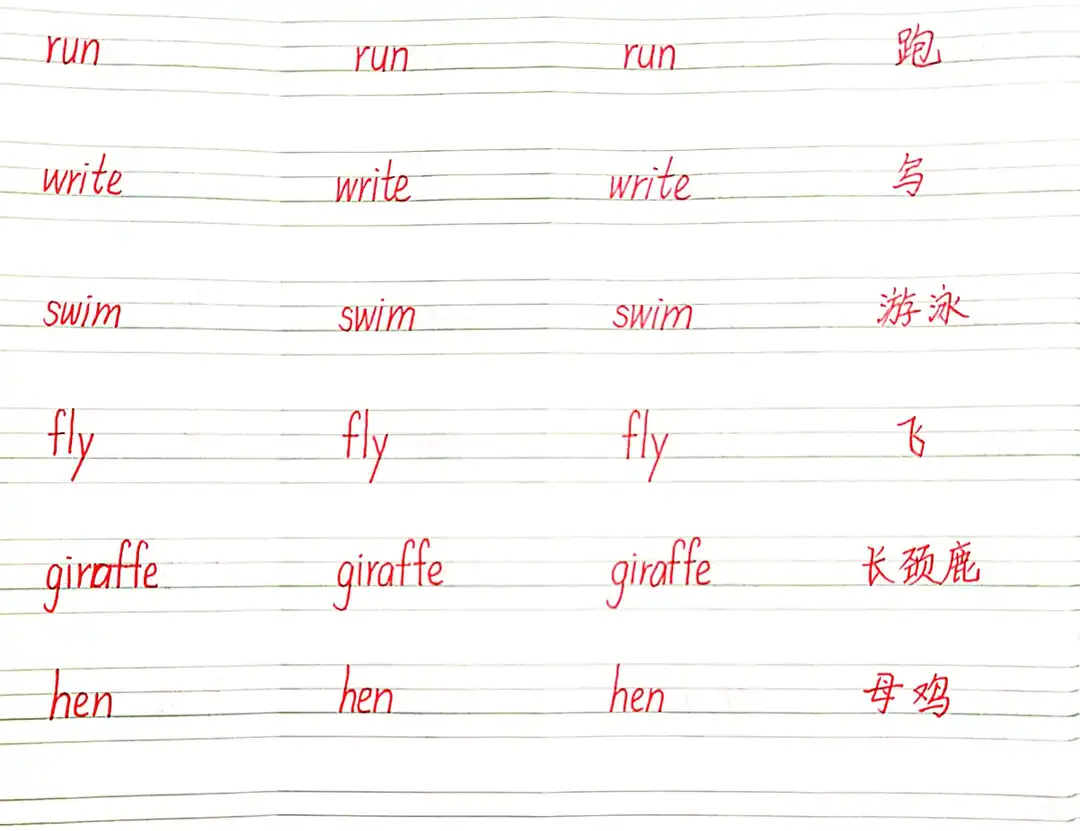 run run run 跑
write write write 写
swim swim swim 游泳
fly fly fly 飞
giraffe giraffe giraffe 长颈鹿
hen hen hen 母鸡